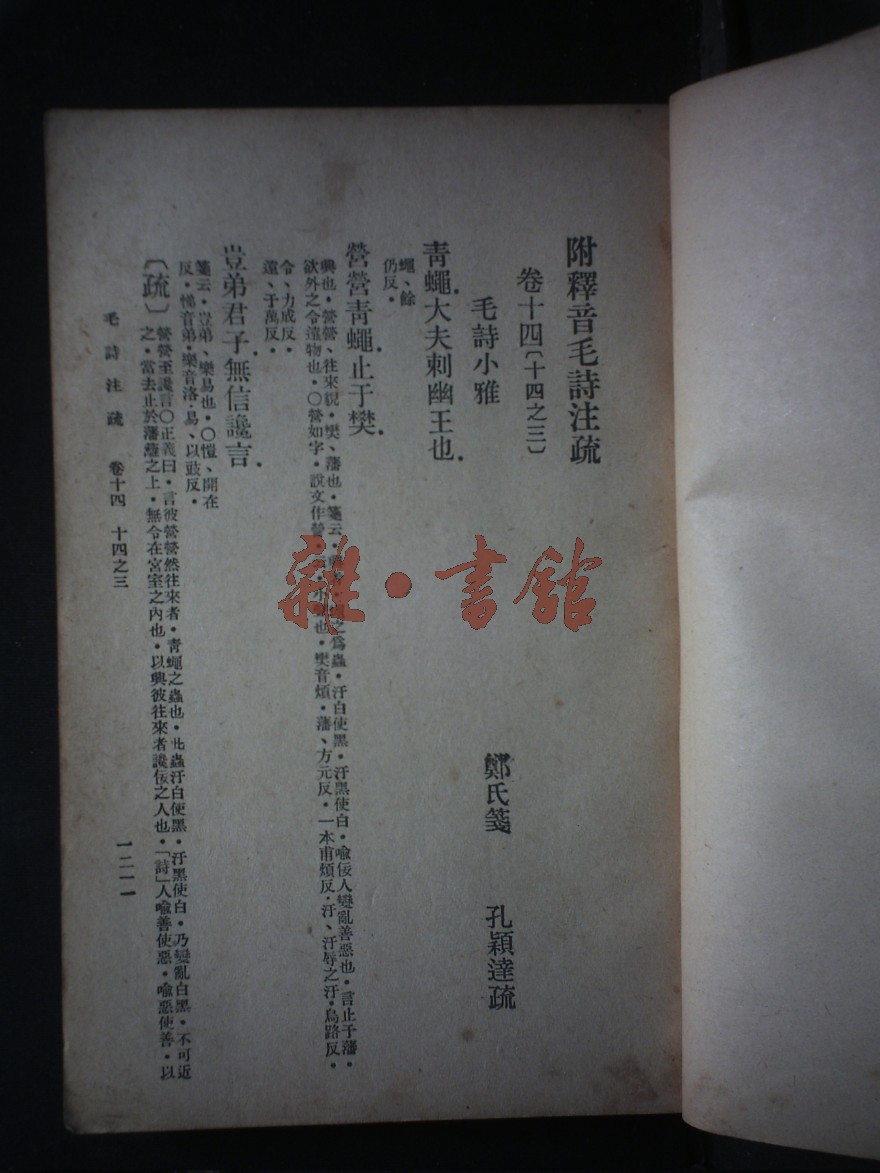 附釋音毛詩注疏
卷十四〔十四之三〕
毛詩小雅
鄭氏箋 孔穎達疏
青蠅.大夫刺幽王也.
蠅、餘
仍反.
營營青蠅.止于樊.
興也.營營、往來貌.樊、藩也.箋云.興者.之爲蟲.汙白使黑.汙黑使白.喩佞人變亂善惡也.言止于藩.
欲外之令遠物也.〇營如字.說文作也.樊音煩.藩、方元反.一本甫煩反.汙、汙辱之汙.烏路反.
令、力成反.
遠、于萬反.
豈弟君子.無信讒言.
箋云.豈弟、樂易也.〇愷、開在
反.悌音弟.樂音洛.易、以豉反.
〔疏〕營營至讒言〇正義曰.言彼營營然往來者.青蠅之蟲也.此蟲汙白使黑.汙黑使白.乃變亂白黑.不可近
之.當去止於藩籬之上.無令在宮室之內也.以興彼往來者讒佞之人也.「詩」人喩善使惡.喩惡使善.以
毛詩注疏 卷十四 十四之三 一二一一
雜·書館